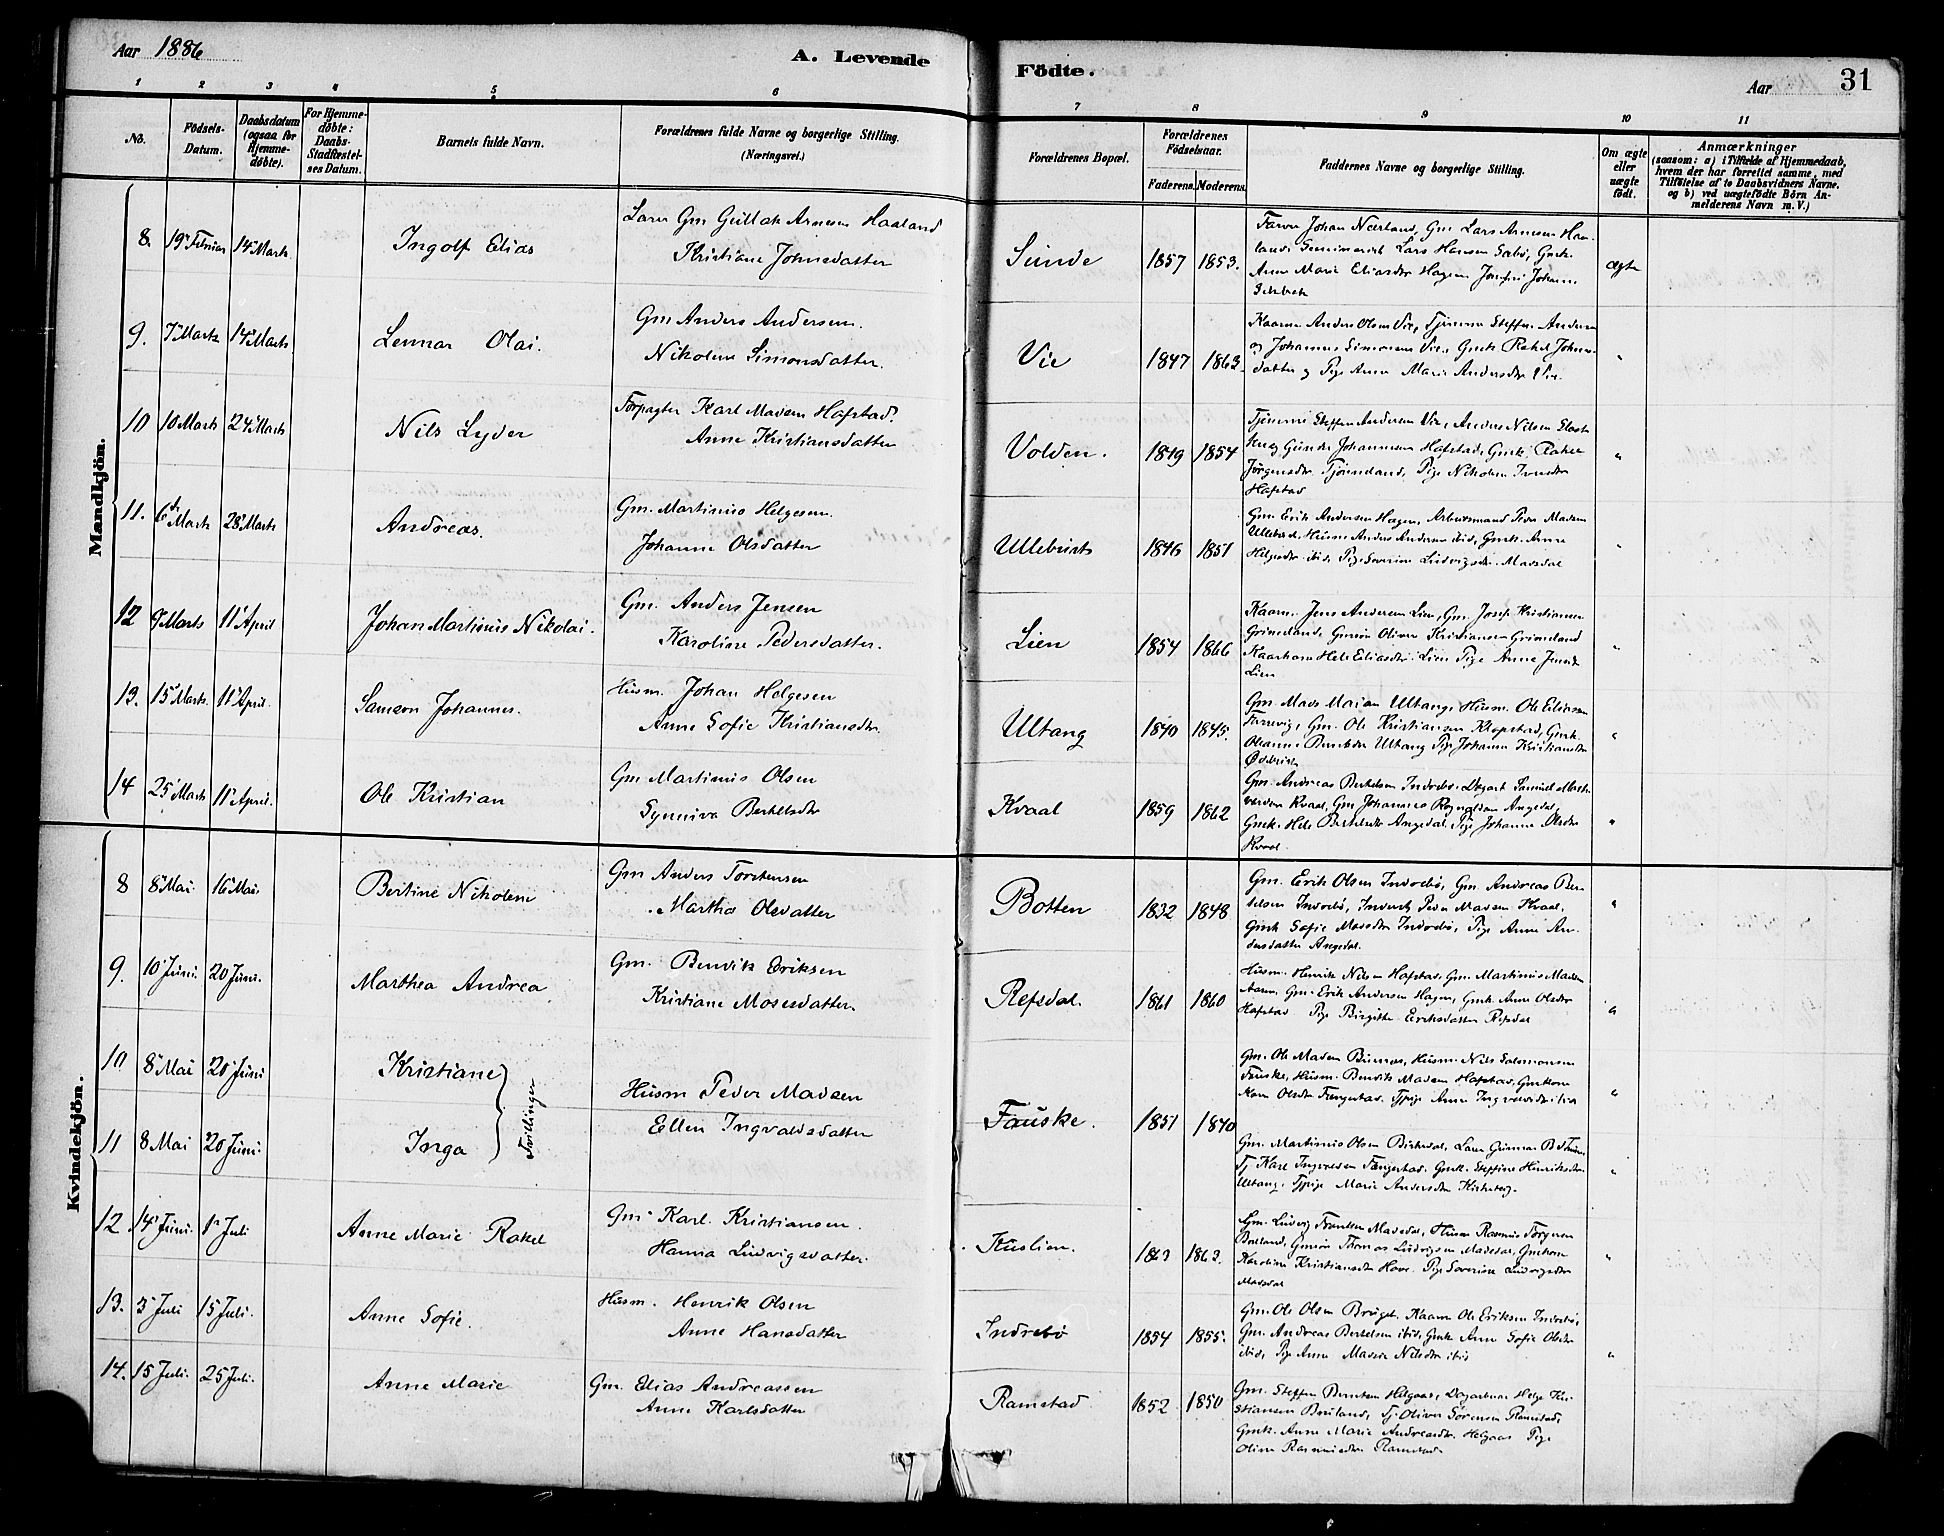 Aar 1886
A. Levende Födte.
Aar
31
1 2 3 4 5 6 7 8 9 10 11
No.
Födsels-Datum.
Daabsdatum (ogsaa for Hjemmedöbte).
For Hjemmedöbte: Daabs-Stadfæstelses Datum.
Barnets fulde Navn.
Forældrenes fulde Navne og borgerlige Stilling. (Næringsvei.)
Forældrenes Bopæl.
Forældrenes Födselsaar.
Faderens. Moderens.
Faddernes Navne og borgerlige Stilling.
Om ægte eller uægte födt.
Anmærkninger
(saasom: a) i Tilfælde af Hjemmedaab, hvem der har forrettet samme, med Tilföielse af to Daabsvidners Navne. og b) ved uægtefödte Börn Anmelderens Navn m. V.)
Mandkjön.
8. 19 Februar 14 Marts Ingolf Elias
Lærer Gm Gullak Arnesen Haaland
Kristiane Johnsdatter
Sunde 1857 1853.
Lars Hansen
Anne Marie Eliasdtr Hagen
ægte
9. 7 Marts 14 Marts Lennar Olai.
Gm Anders Andersen.
Nikoline Simonsdatter.
Vie 1847 1863.
Kaarm Anders Olsen Vie, Tjenner Steffen Andersen
og Johannes Simonsen Vie, Gmk. Rakel Johns-
datter og Pige Anne Marie Andersdtr Vie.
"
10 10 Marts 24 Marts Nils Lyder
Forpagter Karl Madsen Hafstad.
Anne Kristiansdatter
Volden. 1849 1854
Tjenner Steffen Andersen Vie, Anders Nilsen
Johannesen Hafstad, Gmk. Rakel
Jörgensdtr Pige Nikoline
Hafstad
"
11. 6 Marts 28 Marts Andreas.
Gm. Martinus Helgesen.
Johanne Olsdatter
Ullebust 1846 1851
Gm. Erik Andersen Hagen, Arbeidsmand Peder Madsen
Anders Andersen ibid, Gmk. Anne
Helgesdtr ibid, Pige Severine Ludvigsdtr. Masdal
"
12 9 Marts 11 April Johan Martinus Nikolai.
Gm. Anders Jensen
Karoline Pedersdatter.
Lien 1854 1866
Kaarm. Jens Andersen Lien, Gm. Josef Kristiansen
Grimeland, Gmsön Oliver Kristiansen Grimeland
Kaarkone Hele Eliasdtr Lien Pige Anne Jensdtr
Lien
"
13. 15 Marts. 11 April. Samson Johannes.
Husm. Johan Helgesen
Anne Sofie Kristiansdtr.
Ultang 1840 1845.
Gm. Mads Ultang, Husm. Ole Eliasen
Gm. Ole Kristiansen Klopstad, Gmk.
Oleanne Ultang Pige Johanne Kristiansdtr
"
14 25 Marts 11 April. Ole Kristian
Gm Martinus Olsen
Synneva Bertelsdtr
Kvaal 1859 1862
Gm. Andreas Bertelsen Indrebö, Samuel
Kvaal, Gm Johannes Angedal,
Gmk. Hele Bertelsdtr Angedal, Pige Johanne Olsdtr
Kvaal.
"
Kvindekjön.
8 8 Mai 16 Mai Bertine Nikoline
Gm Anders Torstensen
Martha Olsdatter
Botten 1832 1848
Gm. Erik Olsen Indrebö, Gm. Andreas Ber-
telsen Indrebö, Peder Madsen Kvaal,
Gmk Sofie Madsdtr Indrebö, Pige Anne An-
dersdatter Angedal.
"
9. 10 Juni. 20 Juni. Marthea Andrea
Gm. Bendik Eriksen
Kristiane Mosesdatter.
Refsdal. 1861 1860
Husm. Henrik Nilsen Hafstad, Gm. Martinus Madsen
Gm. Erik Andersen Hagen, Gmk. Anne Olsdtr
Hafstad Pige Birgitte Eriksdatter Refsdal
"
10 8 Mai 20 Juni Kristiane
11 8 Mai 20 Juni. Inga
Tvillinger
Husm Peder Madsen
Ellen Ingvaldsdatter
Fauske. 1851 1840
Gm. Ole Madsen Brunaas, Husm. Nils Salomonsen
Fauske, Husm. Bendik Madsen Hafstad, Gmkone
Olsdtr Tjpige Anne Ingvaldsdtr ibid
"
Gm. Martinus Olsen Birkedal, Lærer Gunnar
Tj. Karl Ingvaldsen Gmk. Steffine Henriksdtr.
Ultang, Tjpige Marie Andersdtr Kirkeberg.
"
12. 14 Juni. 1 Juli Anne Marie Rakel
Gm. Karl. Kristiansen.
Hanna Ludvigsdatter.
Kuslien. 1863 1863.
Gm. Ludvig Masdal, Husm Rasmus
Gmsön Thomas Ludvigsen Masdal, Gmkone
Karoline Kristiansdtr Hove. Pige Severine Ludvigsdtr
Masdal
"
13. 3 Juli 15 Juli. Anne Sofie.
Husm. Henrik Olsen
Anne Hansdatter
Indrebö 1854 1855.
Gm. Ole Olsen Kaarm Ole Eriksen Indrebö,
Gm. Andreas Bertelsen ibid, Gmk Anne Sofie Olsdtr
ibid, Pige Anne Nilsdtr ibid
"
14. 15 Juli. 25 Juli. Anne Marie
Gm. Elias Andreassen
Anne Karlsdatter
Ramstad 1852 1850
Gm. Steffen Helgaas, Helge Kri-
stiansen Bruland, Tj. Oliver Sörensen Ramstad,
Gmk. Anne Marie Andreasdtr. Helgaas Pige
Oline Rasmusdtr Ramstad